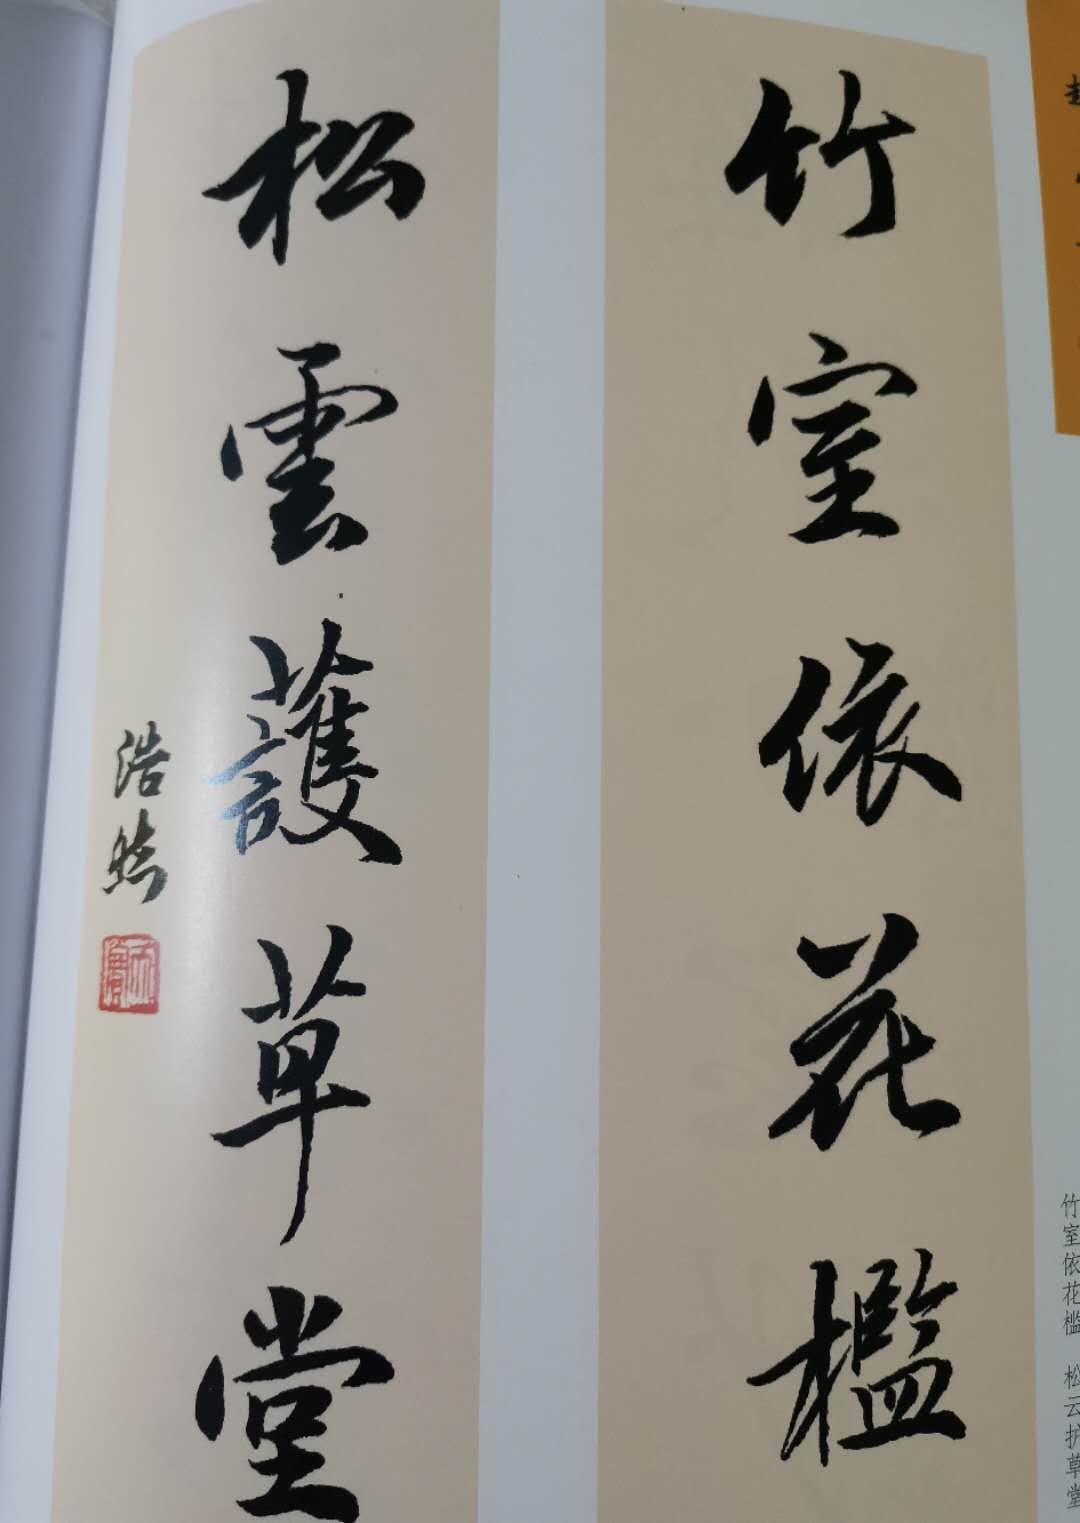 竹室依花槛
松雲護草堂
浩然
竹室依花槛 松云护草堂